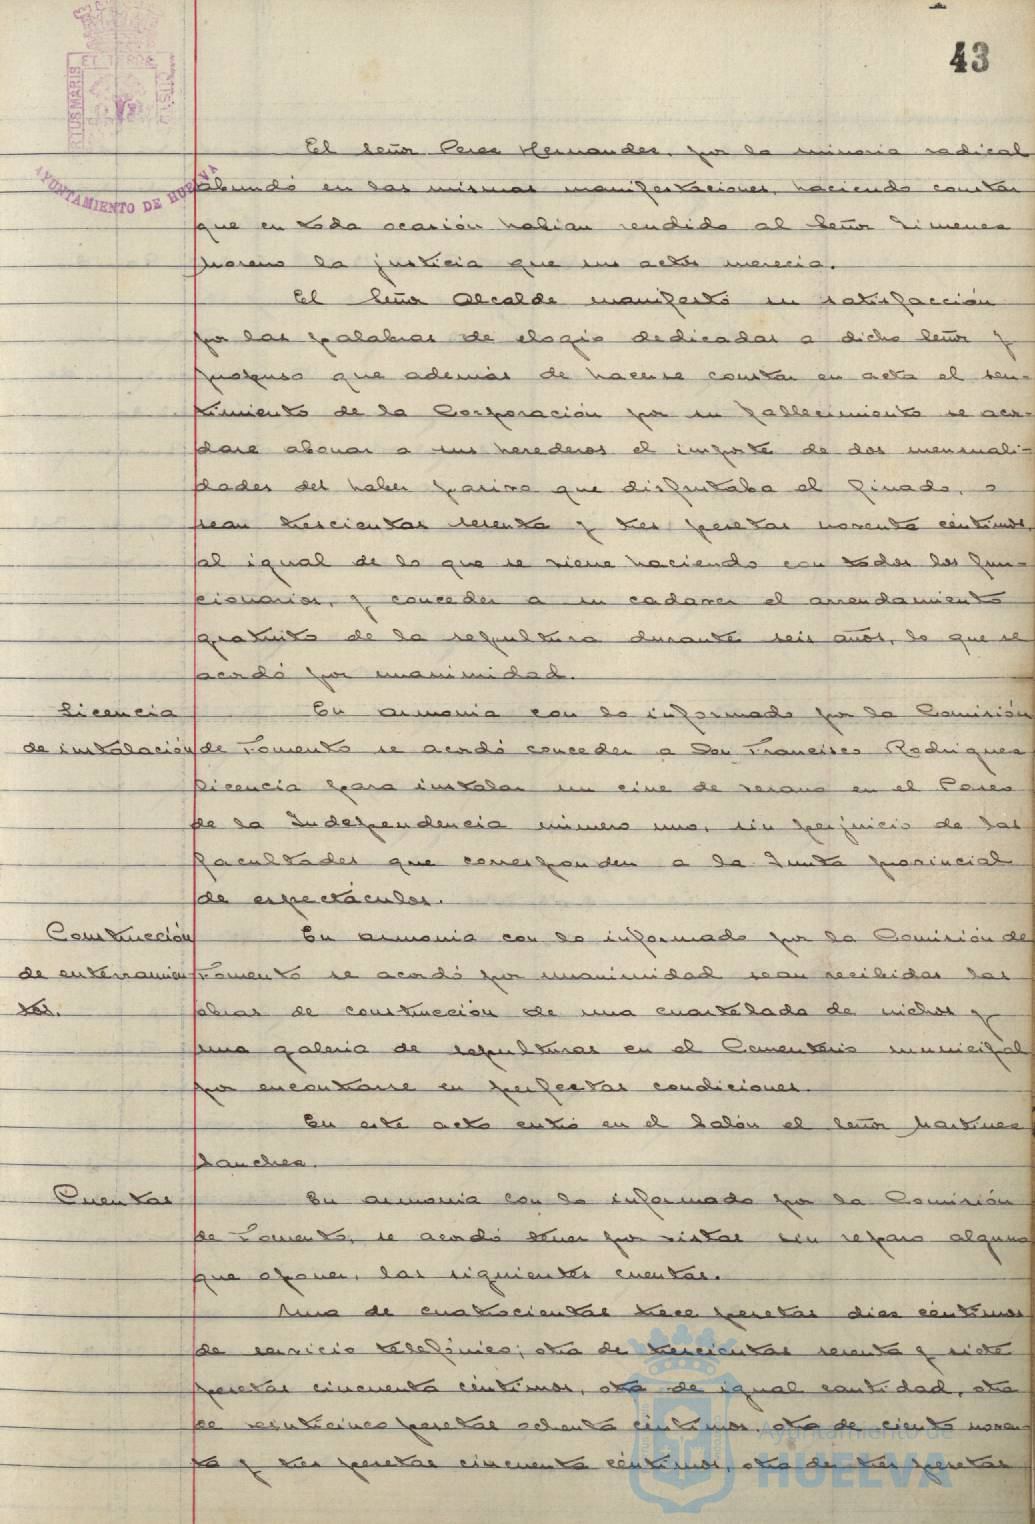 43
AYUNTAMIENTO DE HUELVA
El señor Perez Hernandez, por la minoria radical
abundó en las mismas manifestaciones, haciendo constar
que en toda ocasión habian rendido al Señor Jimenez
Moreno la justicia que sus actos merecia.
El Señor Alcalde manifestó su satisfacción
por las palabras de elogio dedicadas a dicho Señor y
propuso que además de hacerse constar en acta el sen-
timiento de la Corporación por su fallecimiento se acor-
dase abonar a sus herederos el importe de dos mensuali-
dades del haber pasivo que disfrutaba el finado, o
sean trescientas sesenta y tres pesetas noventa céntimos,
al igual de lo que se viene haciendo con todos los fun-
cionarios, y conceder a su cadaver el arrendamiento
gratuito de la sepultura durante seis años, lo que se
acordó por unanimidad.
Licencia
de instalación
En armonia con lo informado por la Comisión
de Fomento se acordó conceder a Don Francisco Rodriguez
licencia para instalar un cine de verano en el Paseo
de la Independencia número uno, sin perjuicio de las
facultades que corresponden a la Junta provincial
de espectáculos.
Construcción
de enterramien
tos.
En armonia con lo informado por la Comisión de
Fomento se acordó por unanimidad sean recibidas las
obras de construcción de una cuartelada de nichos y
una galeria de sepulturas en el Cementerio municipal
por encontrarse en perfectas condiciones.
En este acto entró en el Salón el Señor Martinez
Sanchez.
Cuentas
En armonia con lo informado por la Comisión
de Fomento, se acordó tener por vistas sin reparo alguno
que oponer, las siguientes cuentas.
Una de cuatrocientas trece pesetas diez céntimos
de servicio telefónico; otra de trescientas sesenta y siete
pesetas cincuenta céntimos, otra de igual cantidad, otra
de veinticinco pesetas ochenta céntimos, otra de ciento noven-
ta y tres pesetas cincuenta céntimos, otra de tres pesetas
Ayuntamiento de
HUELVA